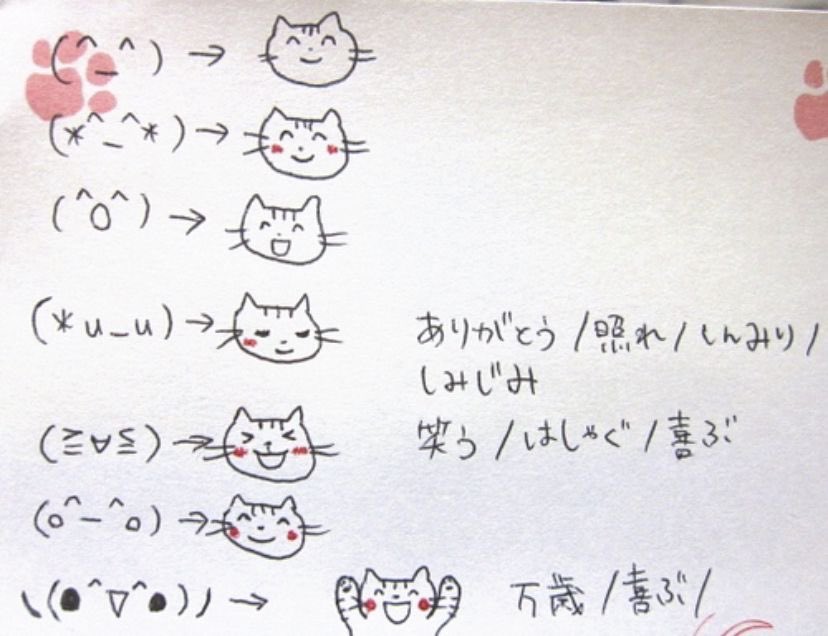 (^_^) →
(*^_^*) →
(^O^) →
(*u_u) → ありがとう/照れ/しんみり/
しみじみ
(≧∀≦) → 笑う/はしゃぐ/喜ぶ
(o^-^o) →
\(●^▽^●)ノ → 万歳/喜ぶ/